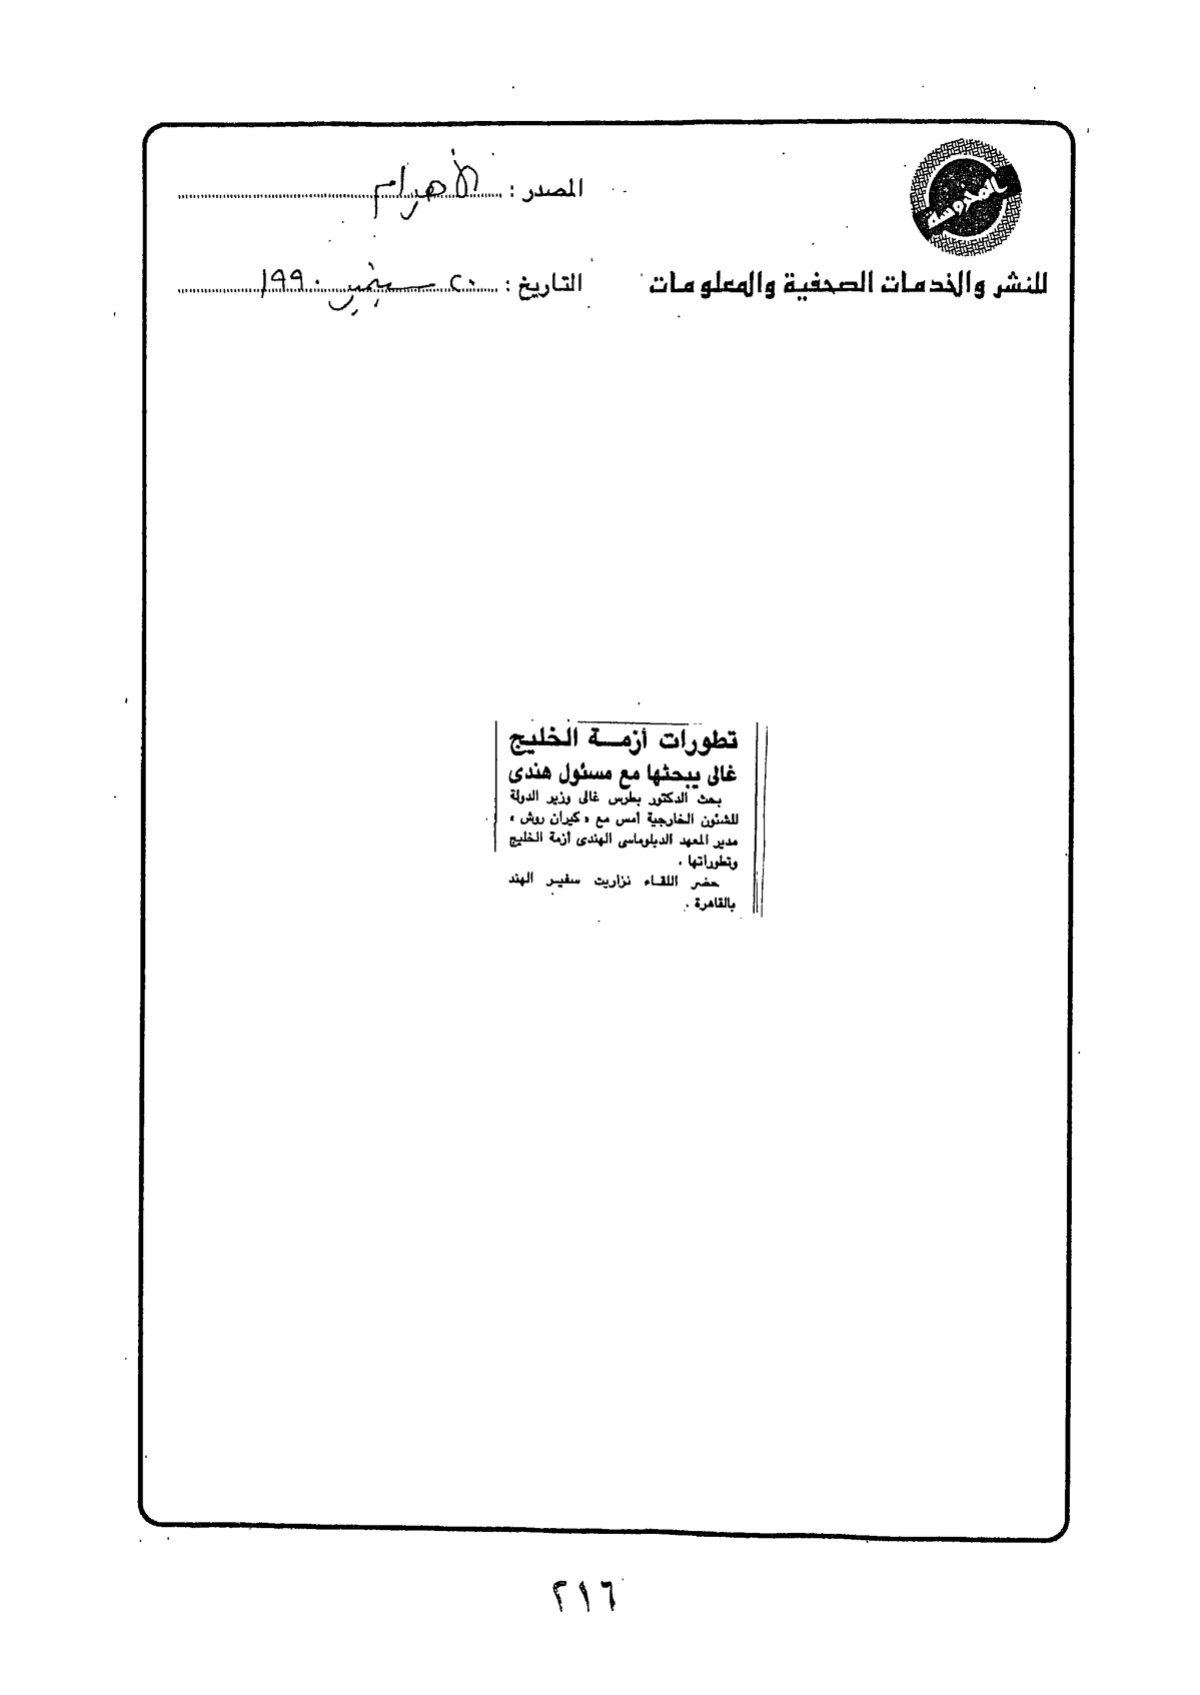 المحروسة
المصدر : الأهرام
للنشر والخدمات الصحفية والمعلومات
التاريخ : ٢٠ سبتمبر ١٩٩٠
تطورات أزمة الخليج
غالى يبحثها مع مسئول هندى
بحث الدكتور بطرس غالى وزير الدولة
للشئون الخارجية أمس مع « كيران روش »
مدير المعهد الدبلوماسى الهندى أزمة الخليج
وتطوراتها .
حضر اللقاء نزاريت سفير الهند
بالقاهرة .
٢١٦